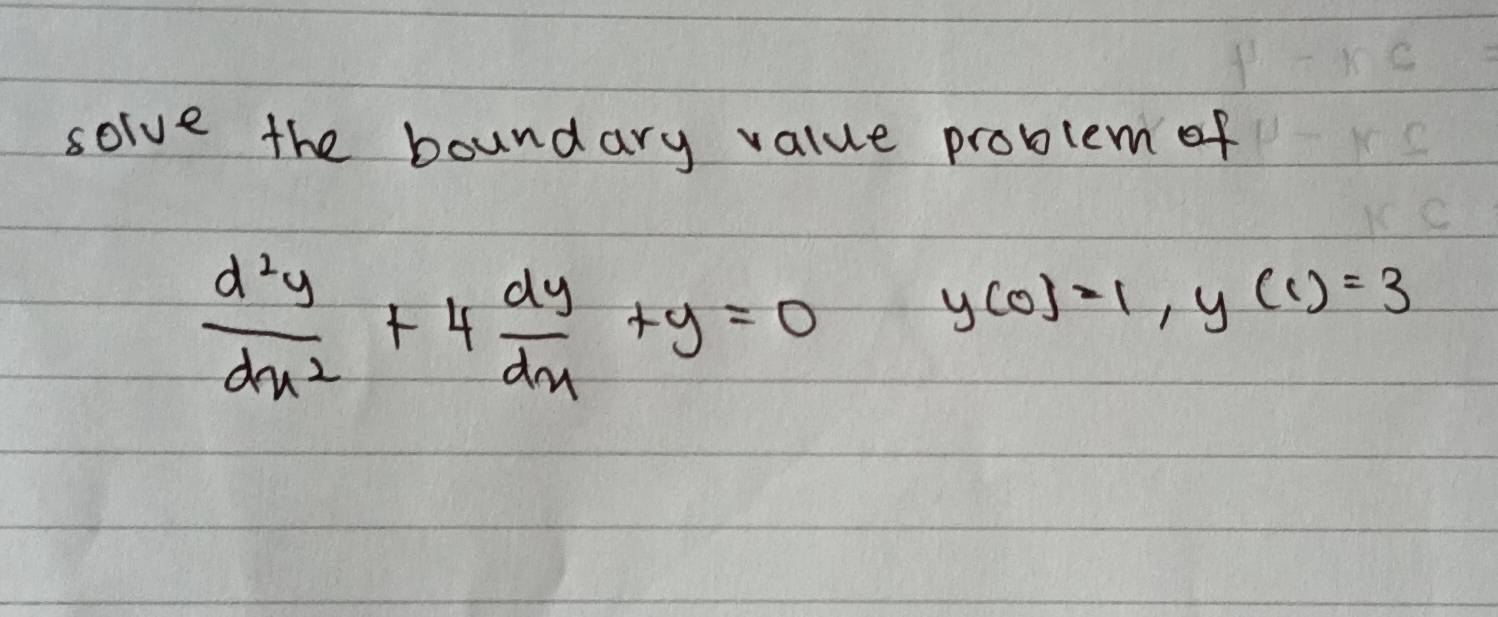 solve the boundary value problem of
d²y/dx² + 4 dy/dx + y = 0 y(0) = 1, y(1) = 3